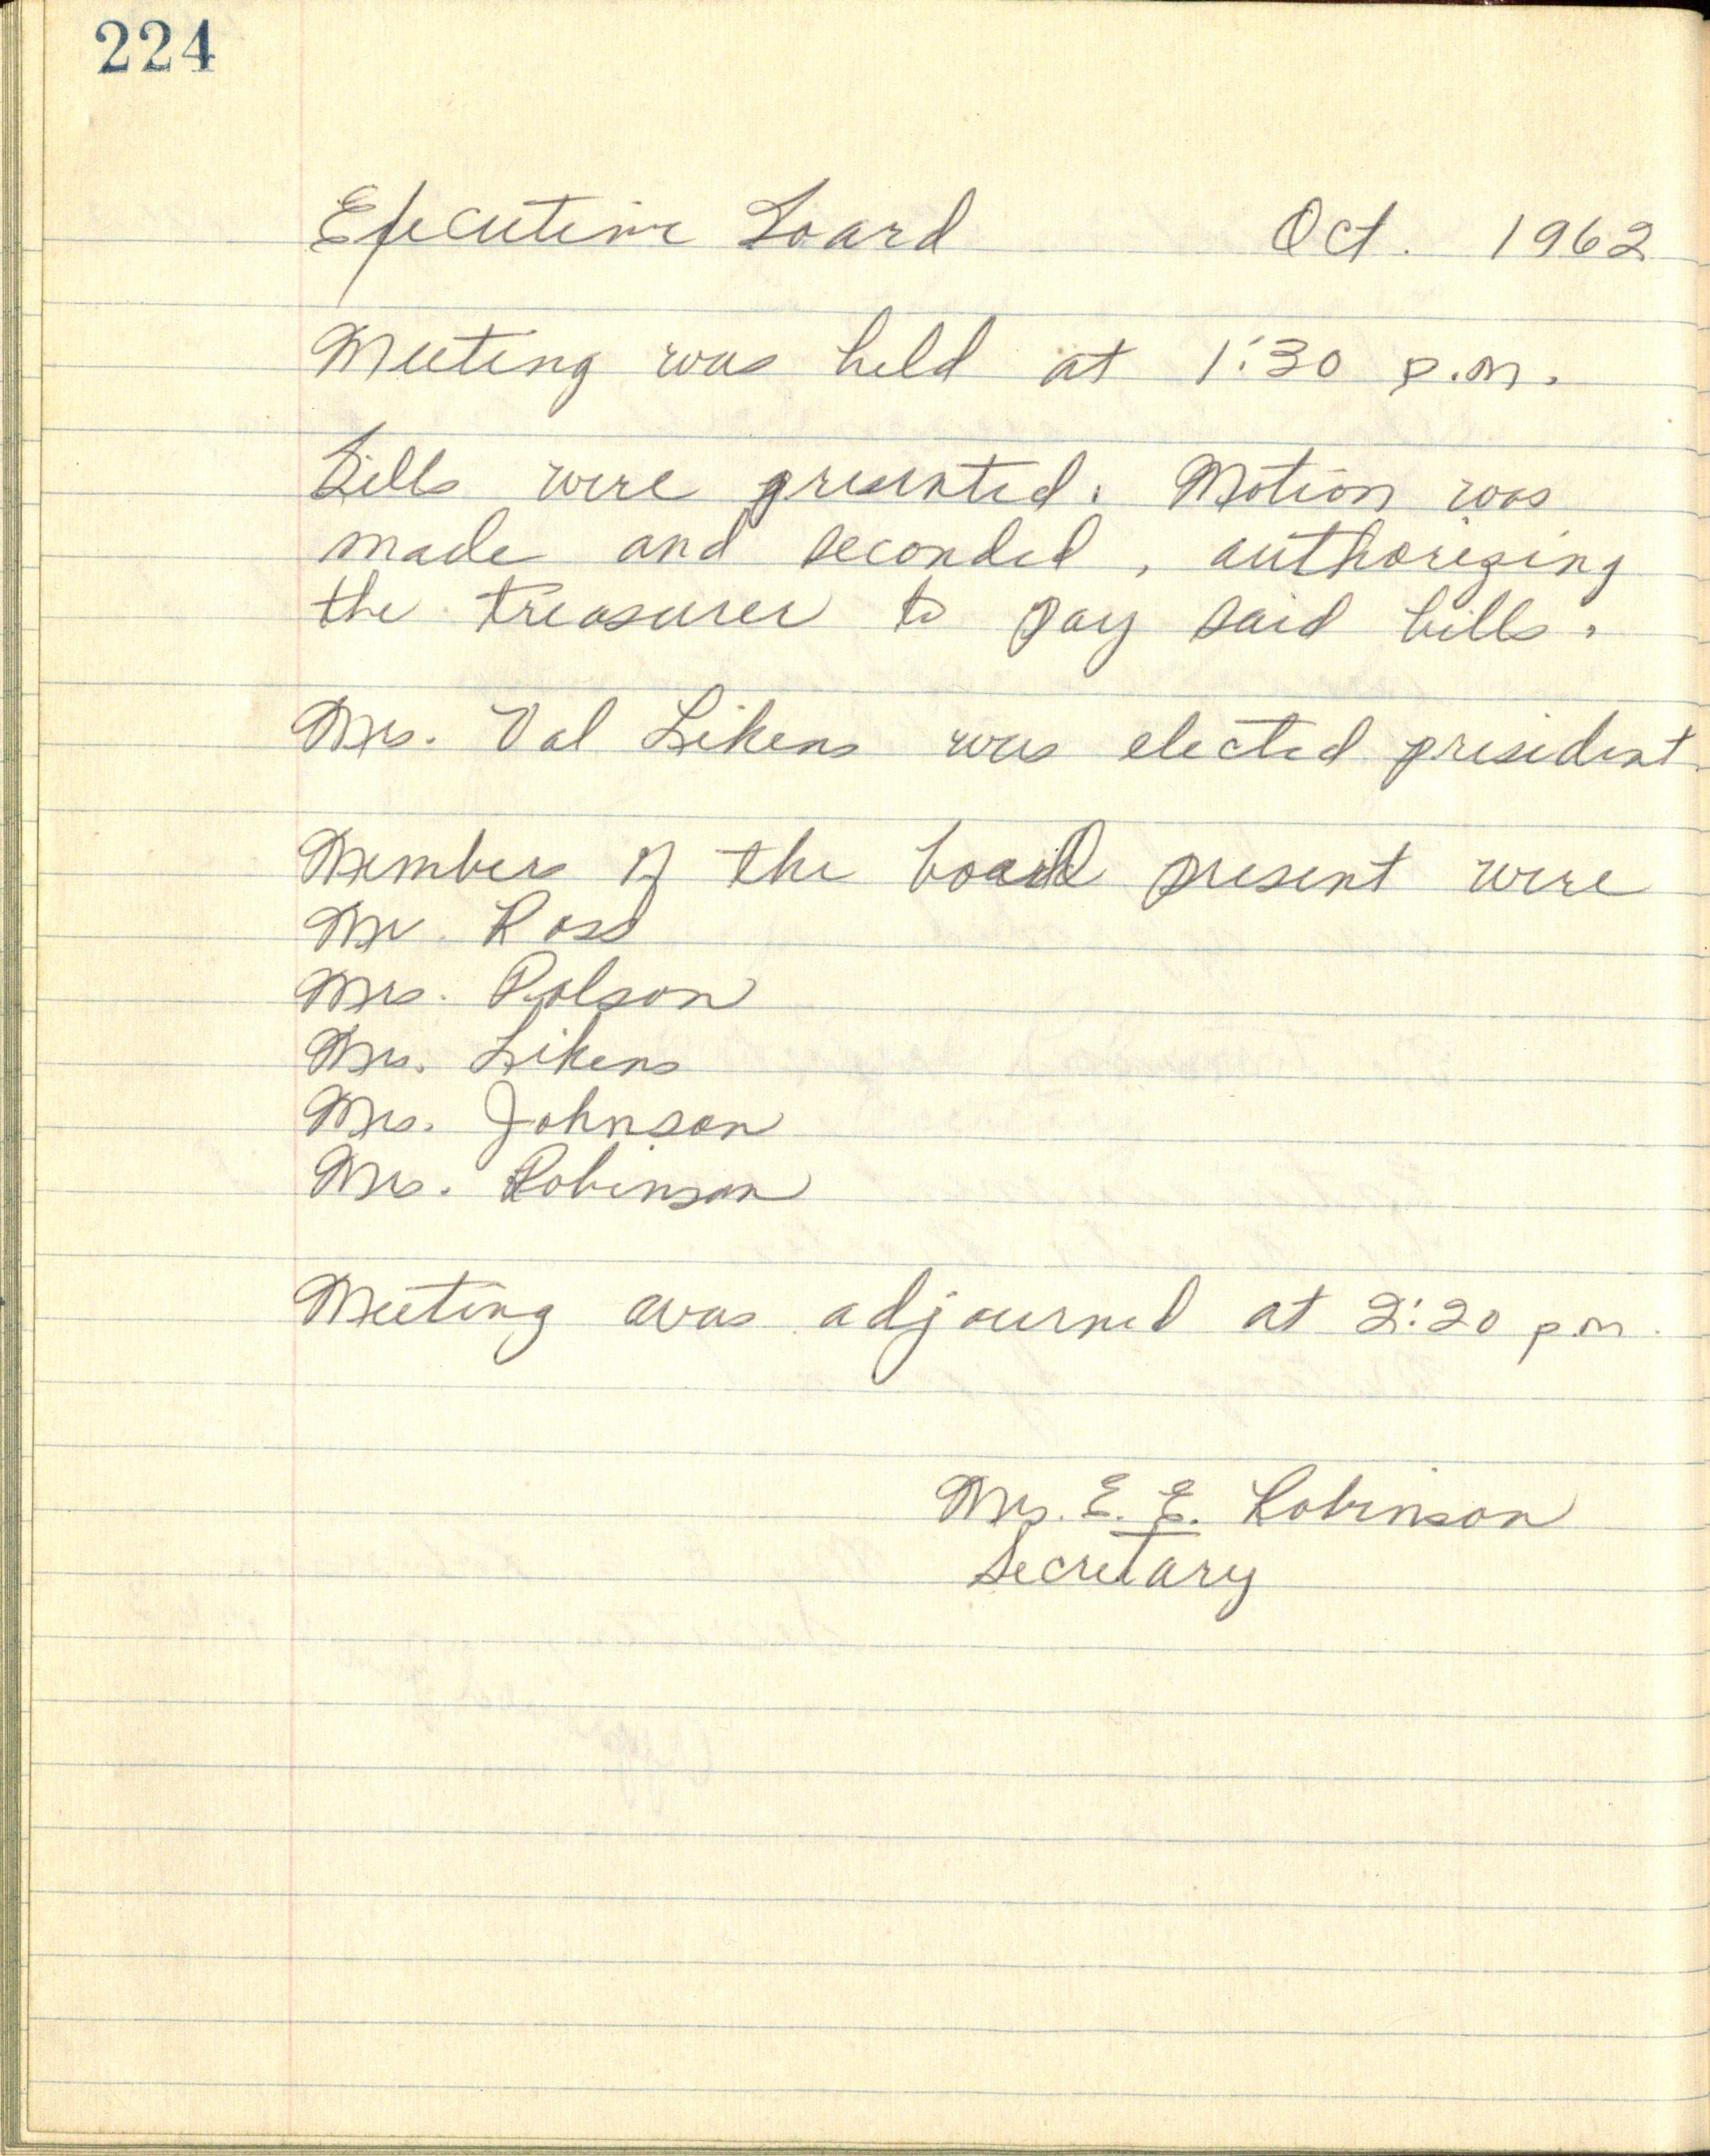 224
Executive Board Oct. 1962
Meeting was held at 1:30 p.m.
Bills were presented. Motion was
made and seconded, authorizing
the treasurer to pay said bills.
Mrs. Val Likens was elected president
Members of the board present were
Mr. Ross
Mrs. Polson
Mrs. Likens
Mrs. Johnson
Mrs. Robinson
Meeting was adjourned at 2:20 p.m.
Mrs. E. E. Robinson
Secretary